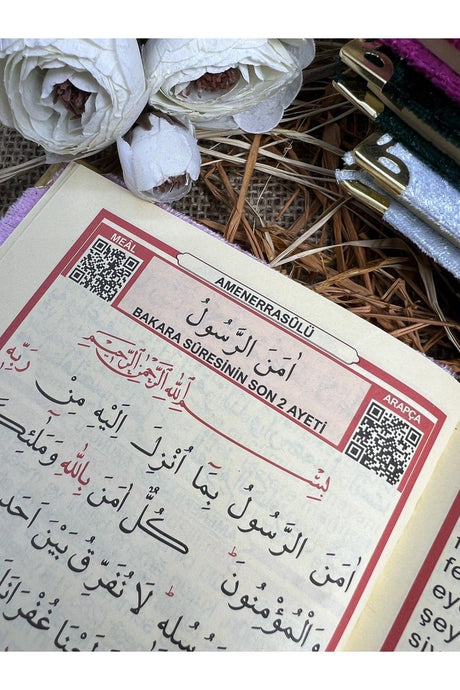 AMENERRASÛLÜ
MEAL
اٰمَنَ الرَّسُولُ
BAKARA SÛRESİNİN SON 2 AYETİ
ARAPÇA
بِسْــــمِ اللّٰهِ الرَّحْمٰنِ الرَّحِيمِ
اٰمَنَ الرَّسُولُ بِمَٓا اُنْزِلَ اِلَيْهِ مِنْ رَبِّهِ
وَالْمُؤْمِنُونَۜ كُلٌّ اٰمَنَ بِاللّٰهِ وَمَلٰٓئِكَ
لَا نُفَرِّقُ بَيْنَ اَحَدٍ
غُفْرَانَ